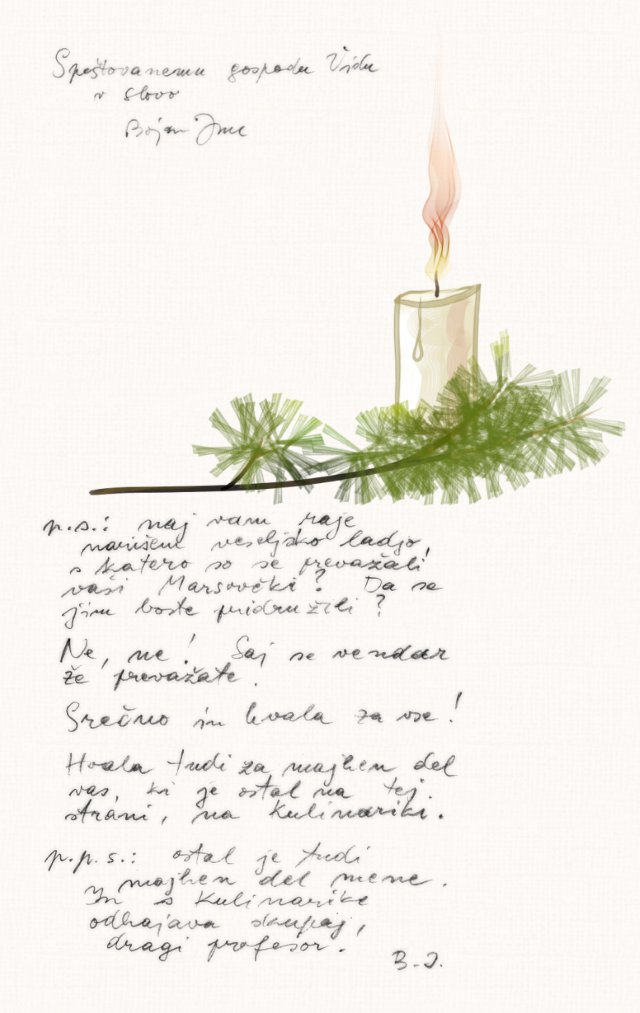 Spoštovanemu gospodu Vidu
v slovo
Bojan
p.s.: naj vam raje
narišem vesoljsko ladjo,
s katero so se prevažali
vaši Marsovčki? Da se
jim boste pridružili?
Ne, ne! Saj se vendar
že prevažate.
Srečno in hvala za vse!
Hvala tudi za majhen del
vas, ki je ostal na tej
strani, na Kulinariki.
p.p.s.: ostal je tudi
majhen del mene.
In s Kulinarike
odhajava skupaj,
dragi profesor.
B.J.